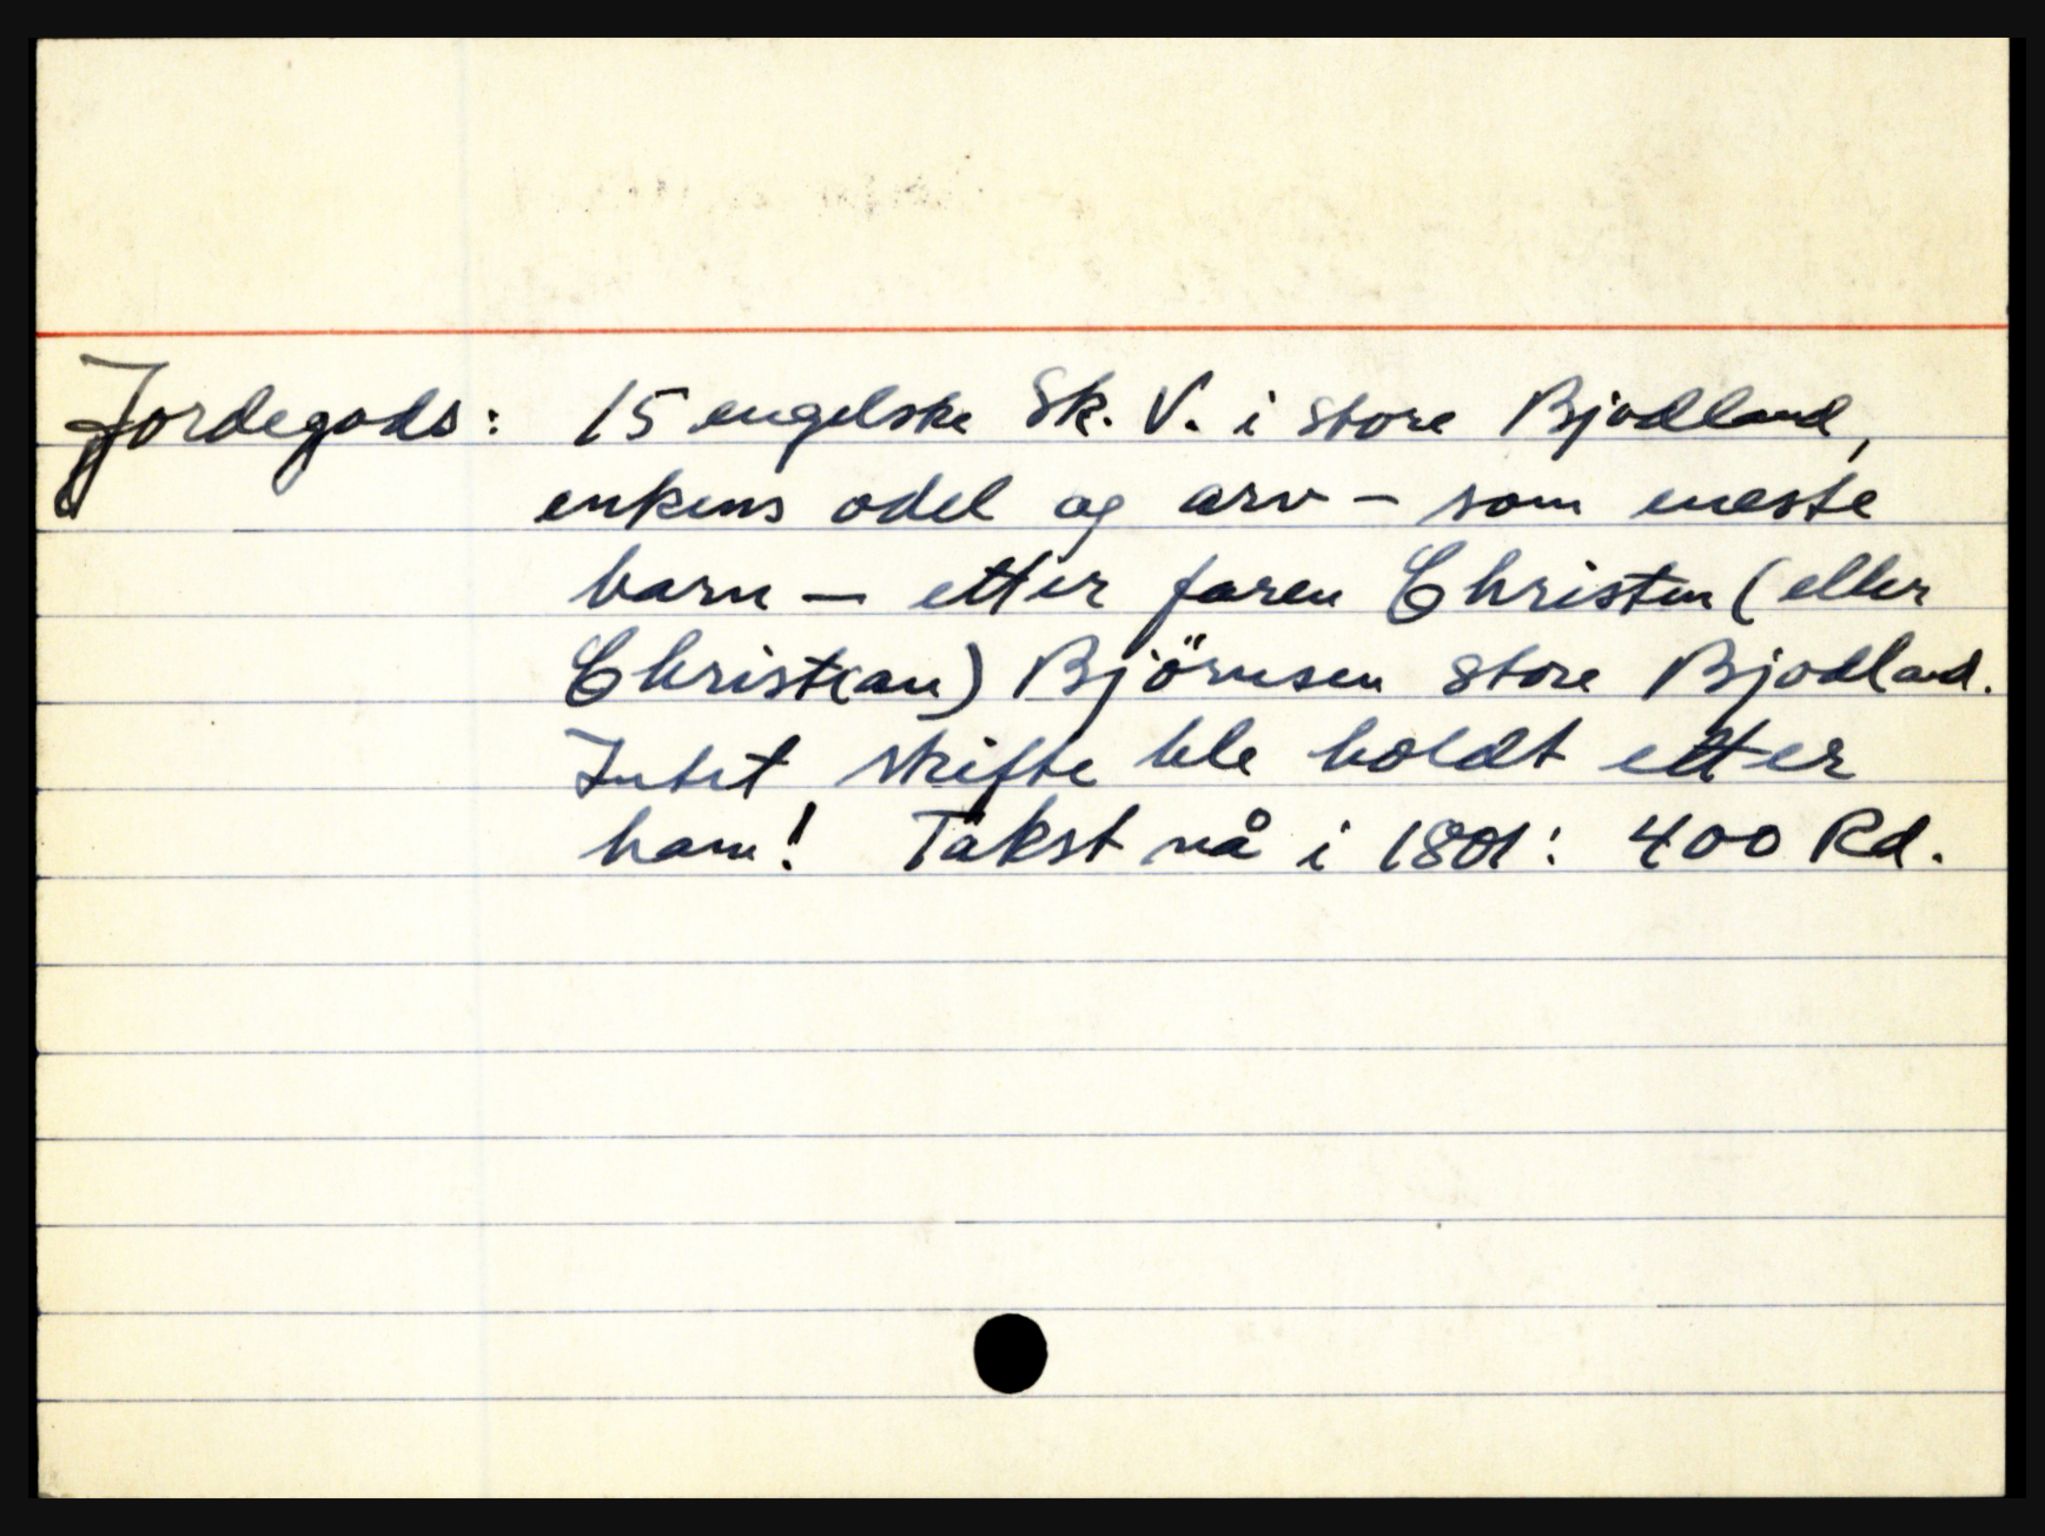 Jordegods: 15 engelske Sk. V. i store Bjodland,
enkens odel og arv - som eneste
barn - etter faren Christen (eller
Christian) Björnsen store Bjodland.
Intet skifte ble holdt etter
ham! Takst nå i 1801: 400 Rd.